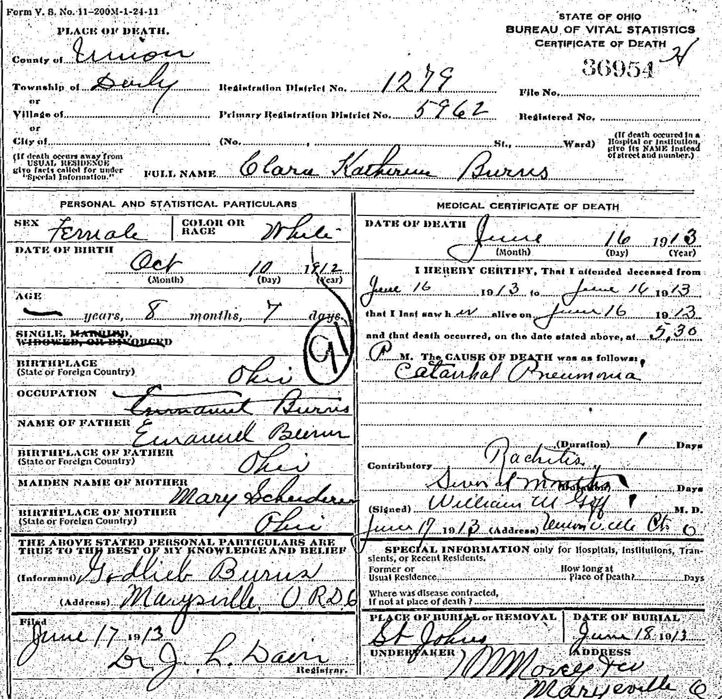 Form V. S. No. 11-200M-1-24-11
PLACE OF DEATH.
County of Union
Township of Darby
or
Village of
or
City of
(If death occurs away from
USUAL RESIDENCE
give facts called for under
"Special Information.")
STATE OF OHIO
BUREAU OF VITAL STATISTICS
CERTIFICATE OF DEATH
36954
Registration District No. 1279
File No.
Primary Registration District No. 5962
Registered No.
(No. , St., Ward)
(If death occured in a
Hospital or Institution,
give its NAME instead
of street and number.)
FULL NAME Clara Katherine Burns
PERSONAL AND STATISTICAL PARTICULARS
SEX Female
COLOR OR
RACE White
DATE OF BIRTH
Oct 10 1912
(Month) (Day) (Year)
AGE
— years, 8 months, 7 days.
SINGLE, MARRIED,
WIDOWED, OR DIVORCED
91
BIRTHPLACE
(State or Foreign Country) Ohio
OCCUPATION
Emmanuel Burns
NAME OF FATHER
Emanuel Burns
BIRTHPLACE OF FATHER
(State or Foreign Country) Ohio
MAIDEN NAME OF MOTHER
Mary
BIRTHPLACE OF MOTHER
(State or Foreign Country) Ohio
THE ABOVE STATED PERSONAL PARTICULARS ARE
TRUE TO THE BEST OF MY KNOWLEDGE AND BELIEF
(Informant) Godlieb Burns
(Address) Marysville, O R D 6
Filed
June 17 1913
Dr. J. L. Davis
Registrar.
MEDICAL CERTIFICATE OF DEATH
DATE OF DEATH
June 16 1913
(Month) (Day) (Year)
I HEREBY CERTIFY, That I attended deceased from
June 16 1913 to June 16 1913
that I last saw her alive on June 16 1913
and that death occurred, on the date stated above, at 5,30
P M. The CAUSE OF DEATH was as follows:
Catarrhal Pneumonia
(Duration) Days
Contributory Rachitis
Several Months Days
(Signed) William M Goff M. D.
June 17 1913 (Address) O
SPECIAL INFORMATION only for Hospitals, Institutions, Tran-
sients, or Recent Residents.
Former or
Usual Residence
How long at
Place of Death? Days
Where was disease contracted,
if not at place of death?
PLACE OF BURIAL or REMOVAL
St Johns
DATE OF BURIAL
June 18 1913
UNDERTAKER
ADDRESS
Marysville O